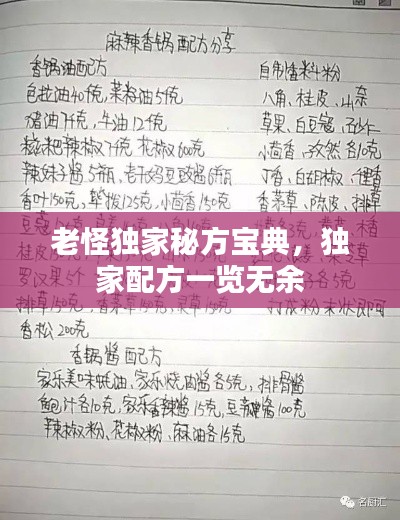 麻辣香锅配方分享
香锅油配方
色拉油40斤，菜籽油5斤
猪油7斤，牛油12斤
糍粑辣椒7斤 花椒600克
辣妹子酱5瓶、老干妈豆豉酱6瓶
香叶150克，荜拨125克，小茴香150克
香松 200克
自制香料粉
八角、桂皮、山奈
草果、白豆蔻、砂仁
小茴香、孜然各10克
丁香、白胡椒
香茅草、陈皮、排草
打成粉末状即可
老怪独家秘方宝典，独
家配方一览无余
香锅酱配方
家乐美味蚝油，家乐烧肉酱各5克，排骨酱
鲍汁各10克，家乐香辣酱15克，豆瓣酱100克
辣椒粉、花椒粉、麻油各15克
名厨汇